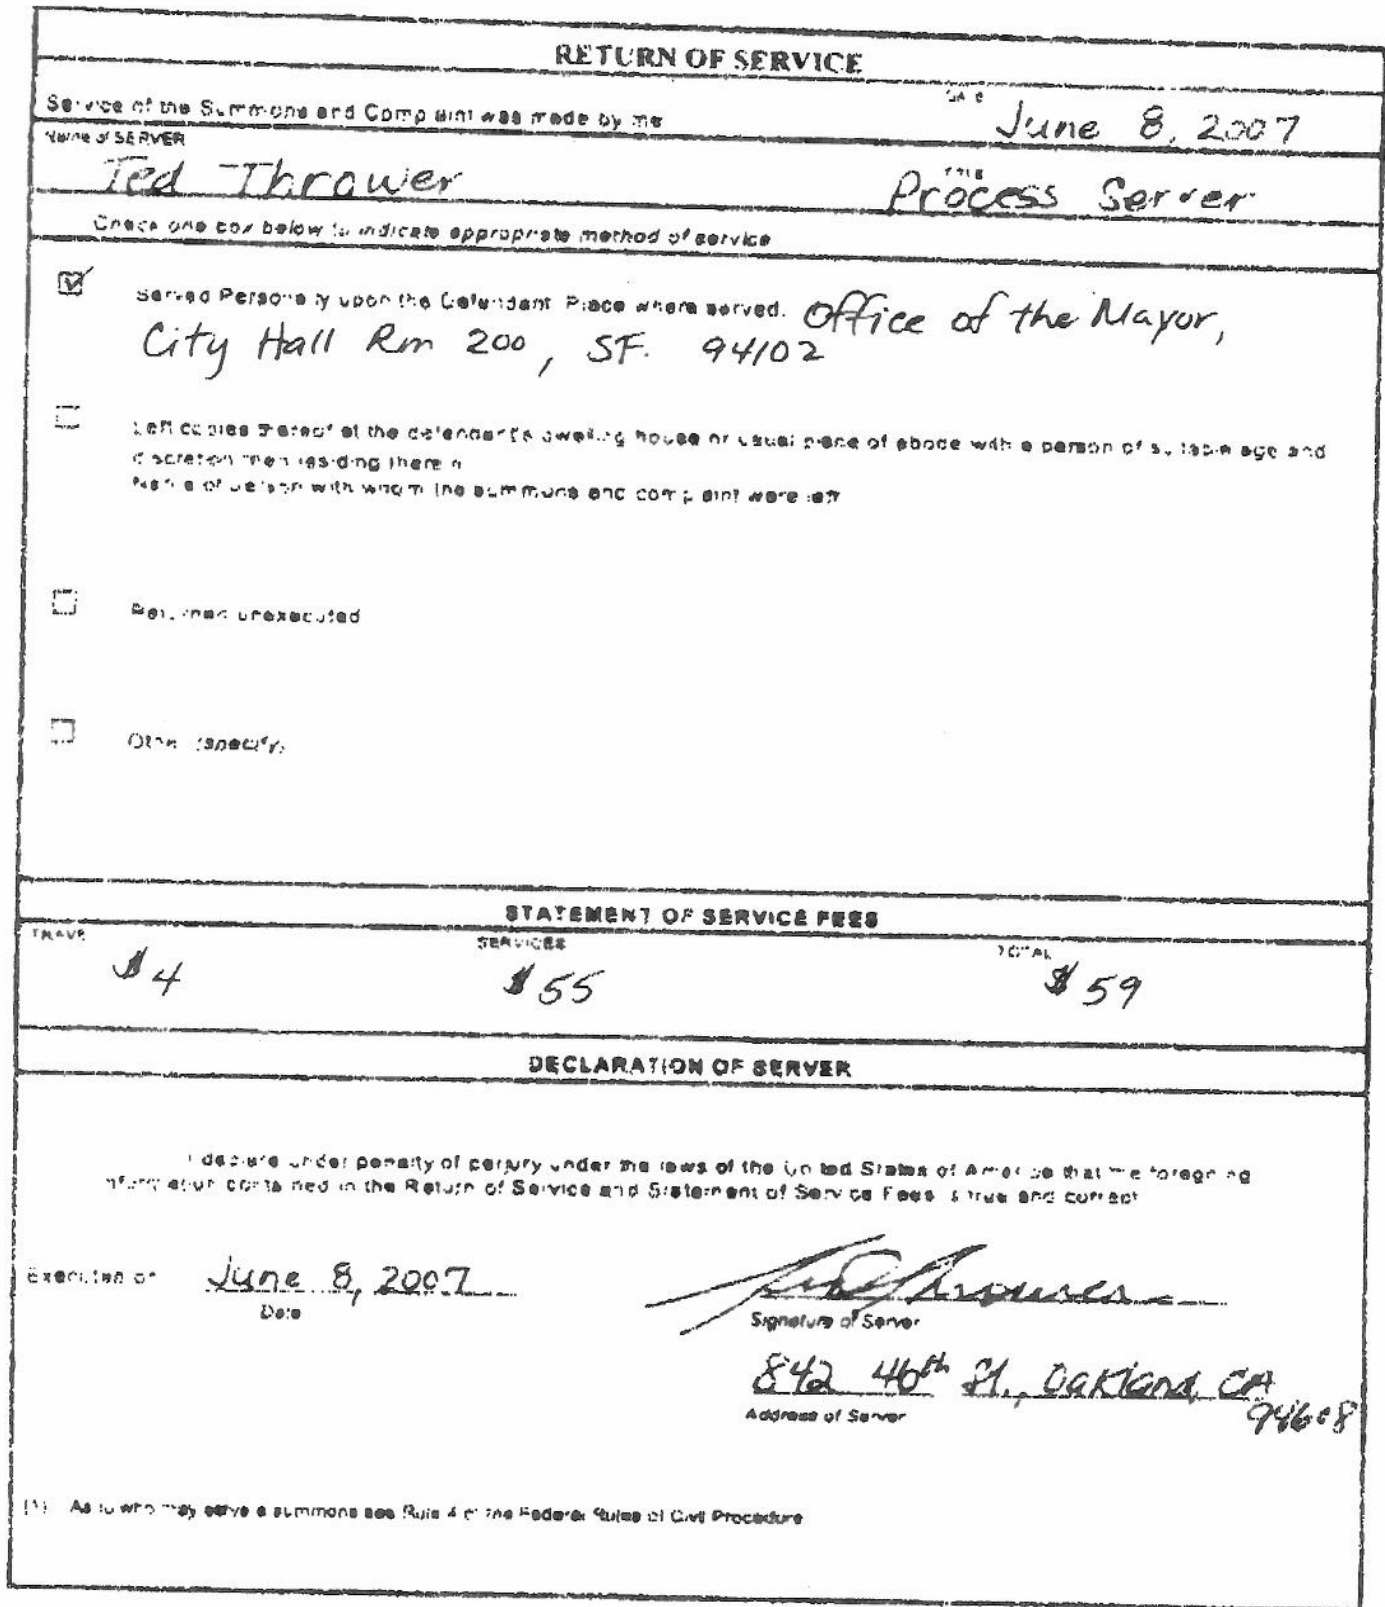 RETURN OF SERVICE
Service of the Summons and Complaint was made by me
DATE
June 8, 2007
Name of SERVER
Ted Thrower
TITLE
Process Server
Check one box below to indicate appropriate method of service
Served Personally upon the Defendant. Place where served. Office of the Mayor,
City Hall Rm 200, SF. 94102
Left copies thereof at the defendant's dwelling house or usual place of abode with a person of suitable age and
discretion then residing therein
Name of person with whom the summons and complaint were left
Returned unexecuted
Other (specify)
STATEMENT OF SERVICE FEES
TRAVEL
SERVICES
TOTAL
$4
$55
$59
DECLARATION OF SERVER
I declare under penalty of perjury under the laws of the United States of America that the foregoing
information contained in the Return of Service and Statement of Service Fees is true and correct
Executed on
June 8, 2007
Date
Ted Thrower
Signature of Server
842 46th St., Oakland, CA
94608
Address of Server
(1) As to who may serve a summons see Rule 4 of the Federal Rules of Civil Procedure